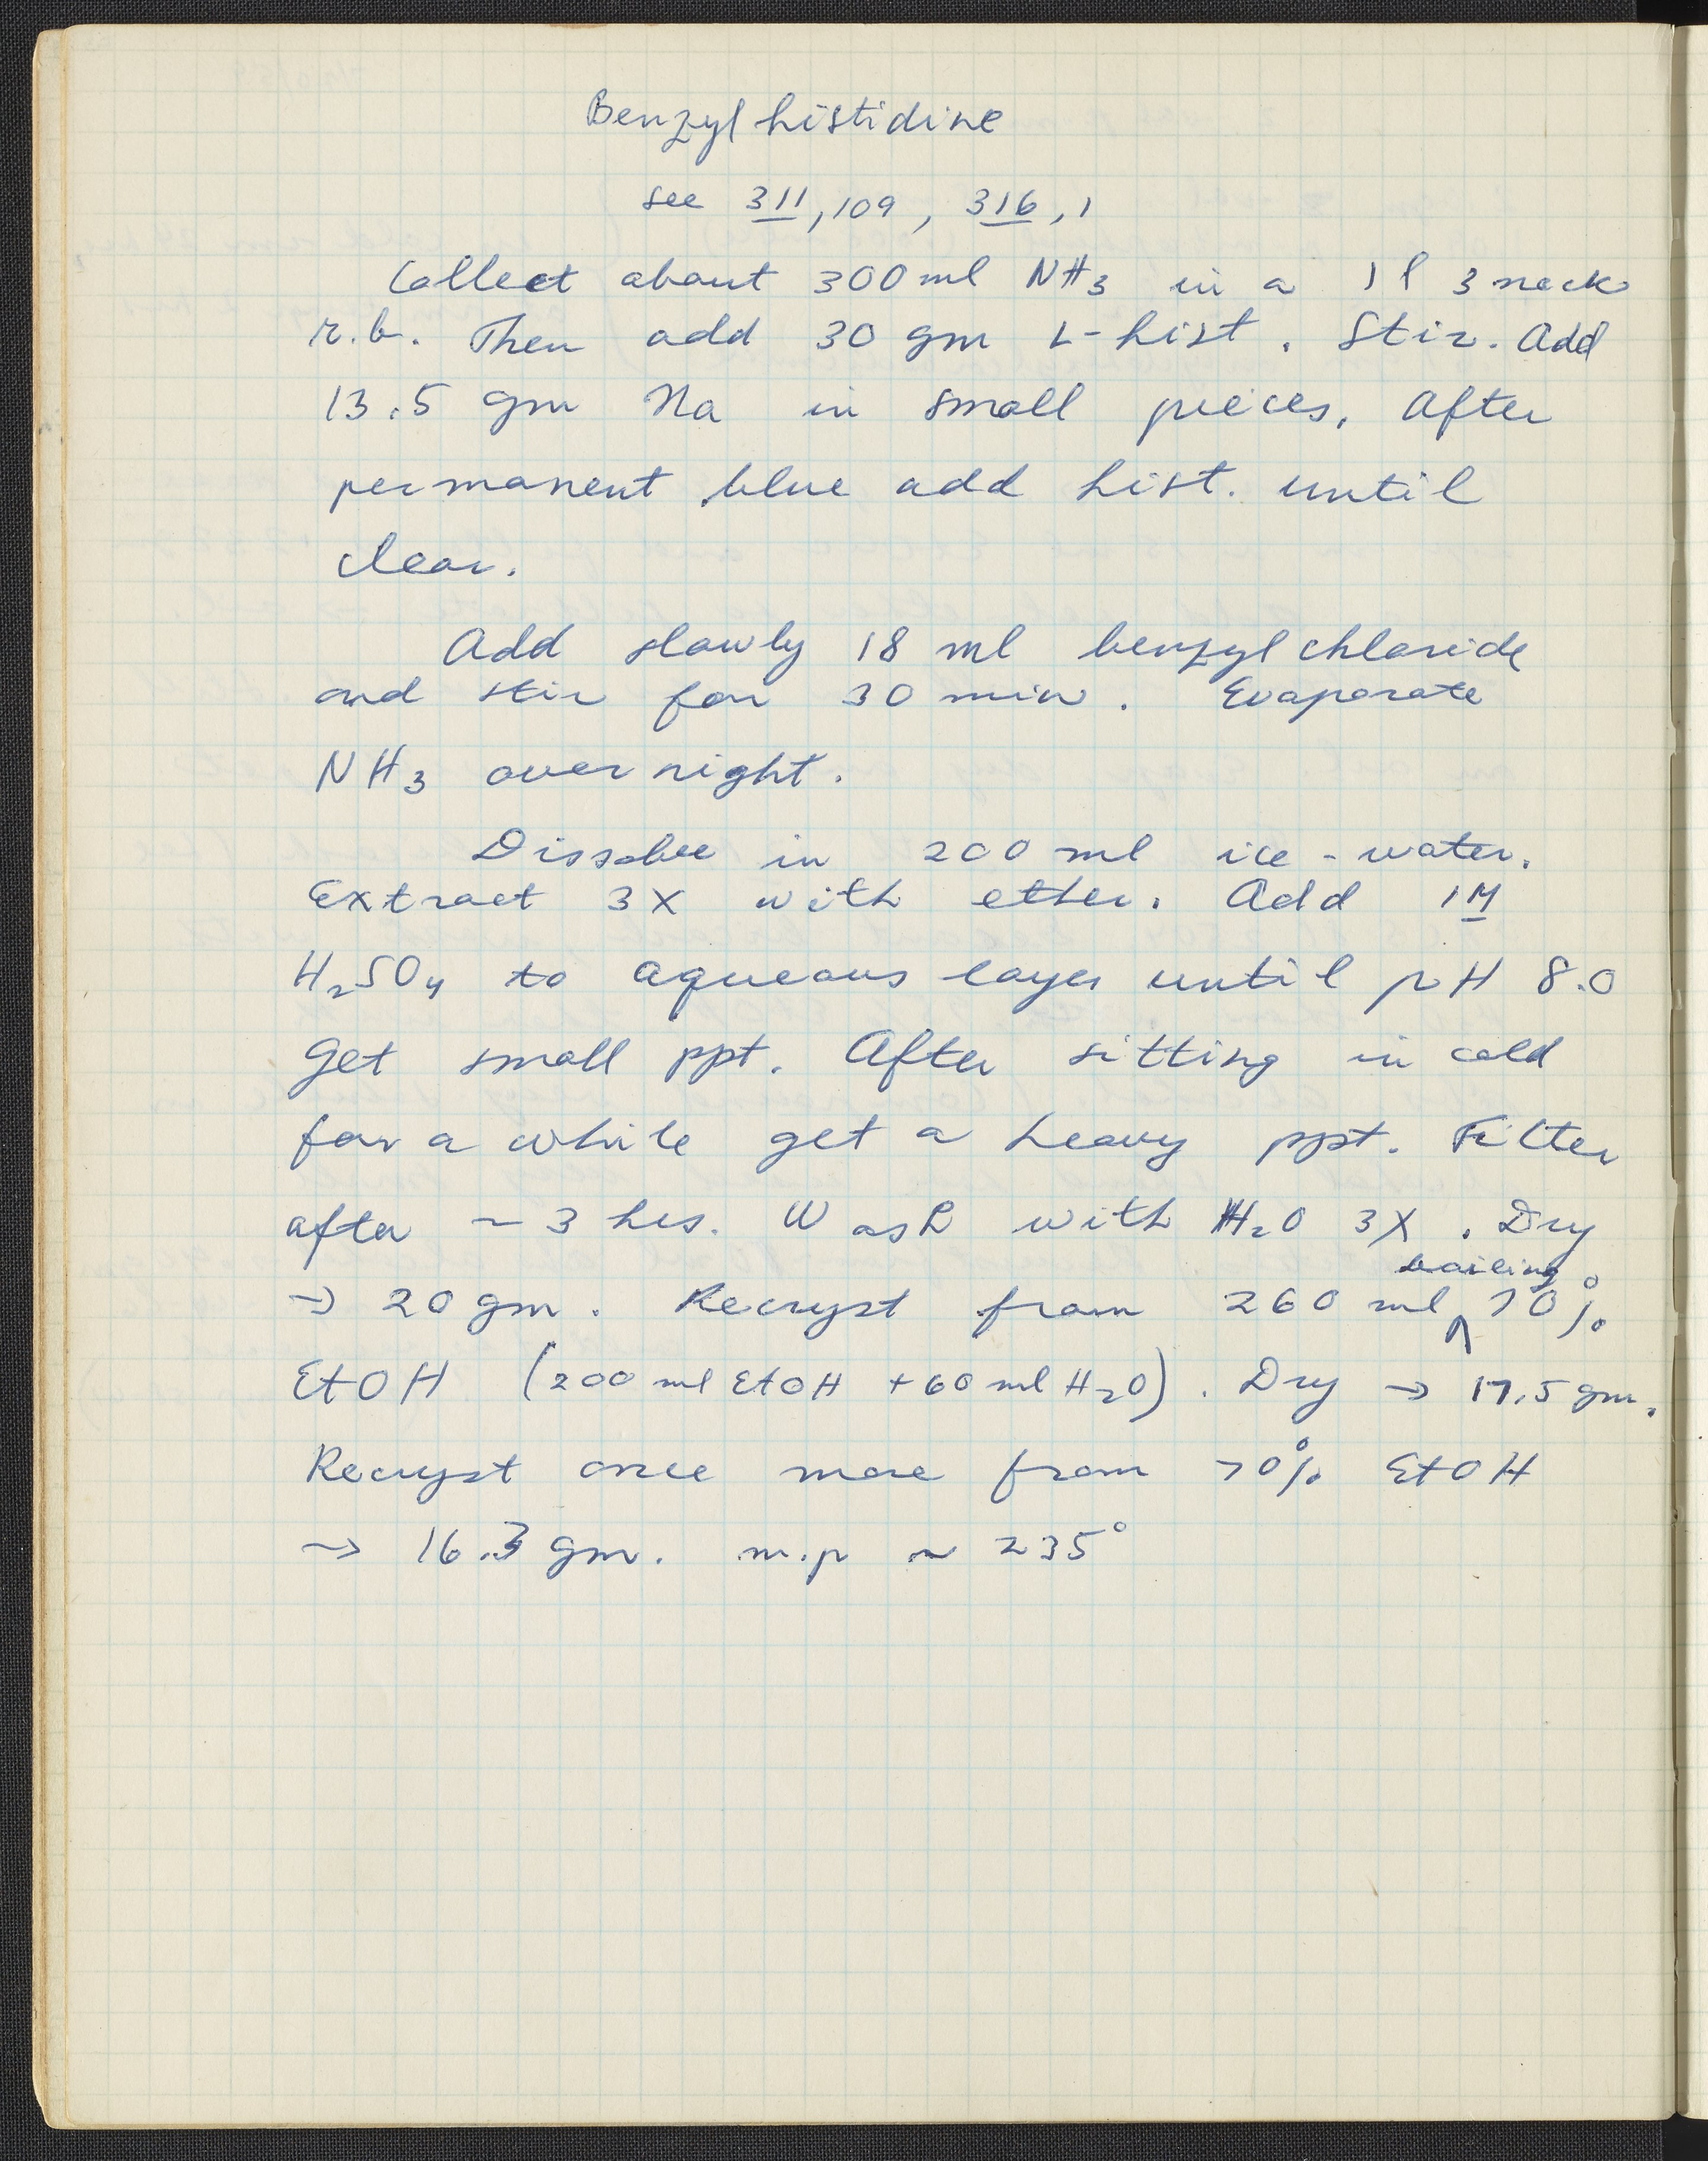 Benzyl histidine
see 311, 109, 316, 1
Collect about 300 ml NH3 in a 1 l 3 neck
r.b. Then add 30 gm L-hist. Stir. Add
13.5 gm Na in small pieces. After
permanent blue add hist. until
clear.
Add slowly 18 ml benzyl chloride
and stir for 30 min. Evaporate
NH3 over night.
Dissolve in 200 ml ice-water.
Extract 3X with ether. Add 1M
H2SO4 to aqueous layer until pH 8.0
Get small ppt. After sitting in cold
for a while get a heavy ppt. Filter
after ~ 3 hrs. Wash with H2O 3X. Dry
→ 20 gm. Recryst from 260 ml boiling 70%
EtOH (200 ml EtOH + 60 ml H2O). Dry → 17.5 gm.
Recryst once more from 70% EtOH
→ 16.3 gm. m.p ~ 235°